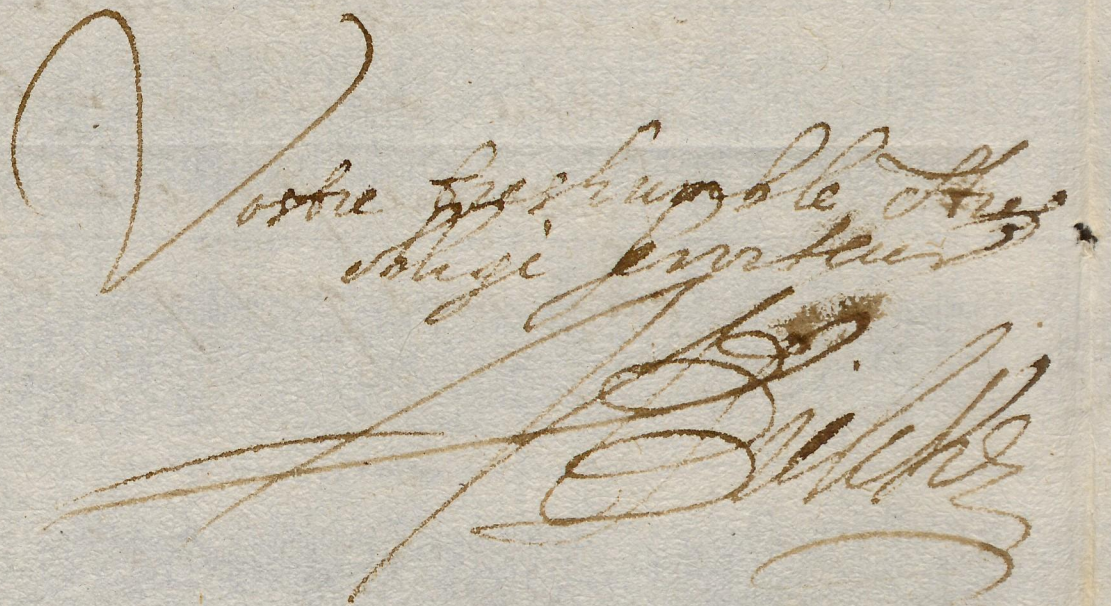 Vostre treshumble et tres
obligé serviteur